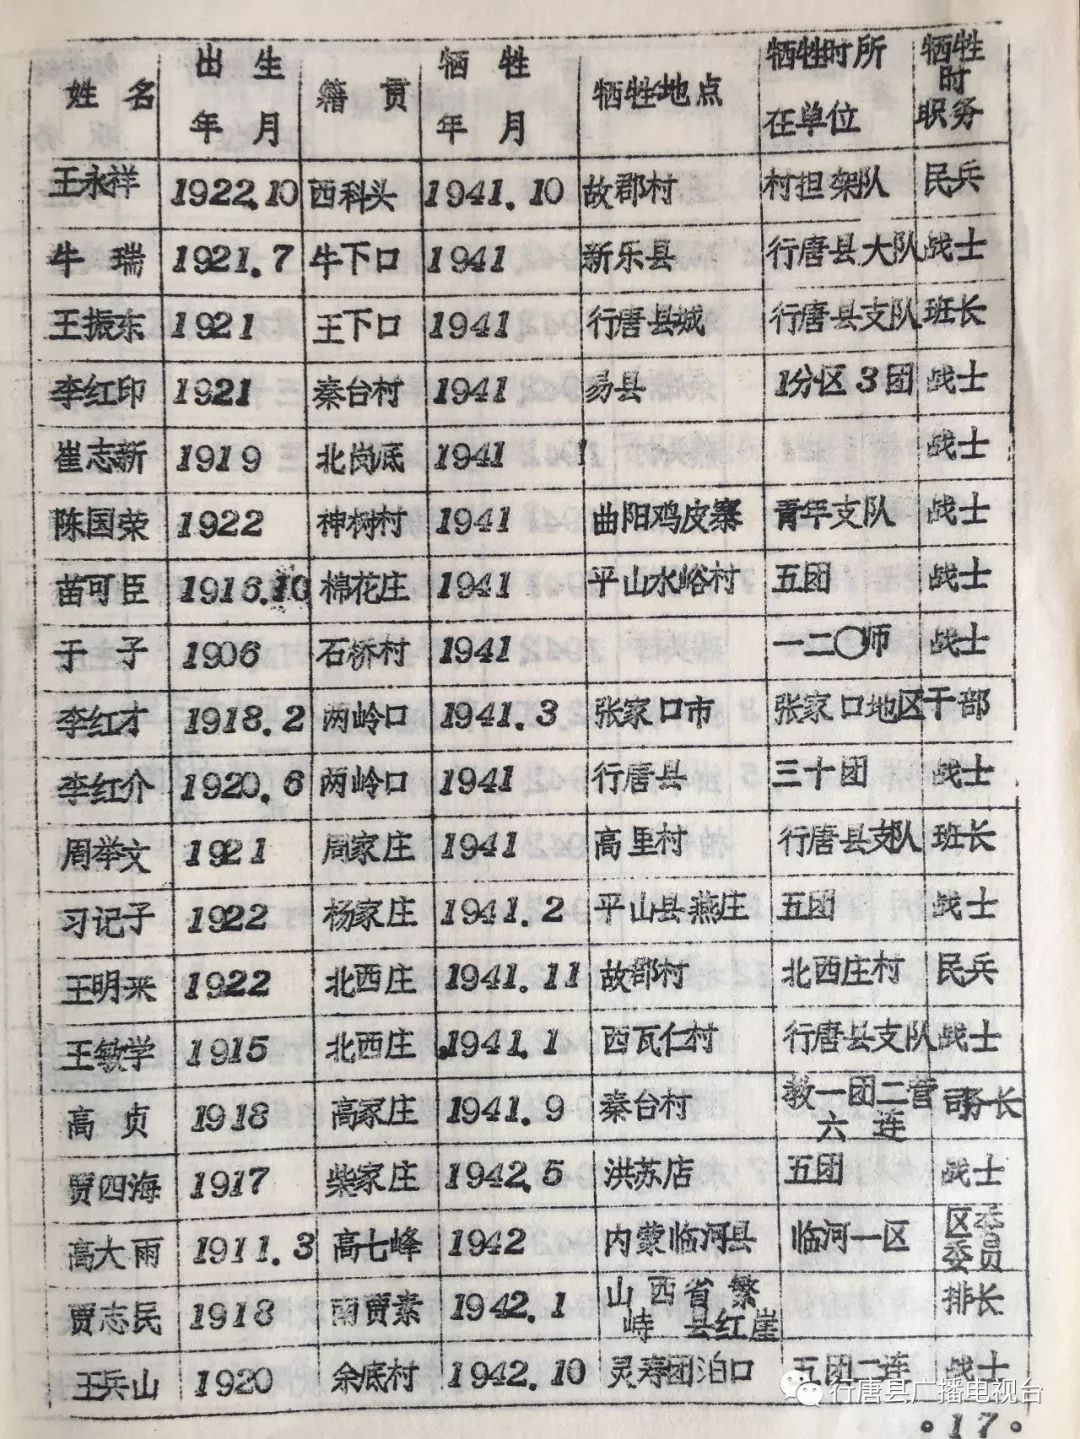 姓名 出生年月 籍贯 牺牲年月 牺牲地点 牺牲时所在单位 牺牲时职务
王永祥 1922.10 西科头 1941.10 故郡村 村担架队 民兵
牛瑞 1921.7 牛下口 1941 新乐县 行唐县大队 战士
王振东 1921 王下口 1941 行唐县城 行唐县支队 班长
李红印 1921 秦台村 1941 易县 1分区3团 战士
崔志新 1919 北岗底 1941 战士
陈国荣 1922 神树村 1941 曲阳鸡皮寨 青年支队 战士
苗可臣 1916.10 棉花庄 1941 平山水峪村 五团 战士
于子 1906 石桥村 1941 一二〇师 战士
李红才 1918.2 两岭口 1941.3 张家口市 张家口地区 干部
李红介 1920.6 两岭口 1941 行唐县 三十团 战士
周举文 1921 周家庄 1941 高里村 行唐县支队 班长
习记子 1922 杨家庄 1941.2 平山县燕庄 五团 战士
王明来 1922 北西庄 1941.11 故郡村 北西庄村 民兵
王敏学 1915 北西庄 1941.1 西瓦仁村 行唐县支队 战士
高贞 1918 高家庄 1941.9 秦台村 教一团二营六连 司务长
贾四海 1917 柴家庄 1942.5 洪苏店 五团 战士
高大雨 1911.3 高七峰 1942 内蒙临河县 临河一区 区委委员
贾志民 1918 南贾素 1942.1 山西省繁峙县红崖 排长
王兵山 1920 余底村 1942.10 灵寿团泊口 五团二连 战士
行唐县广播电视台
·17·